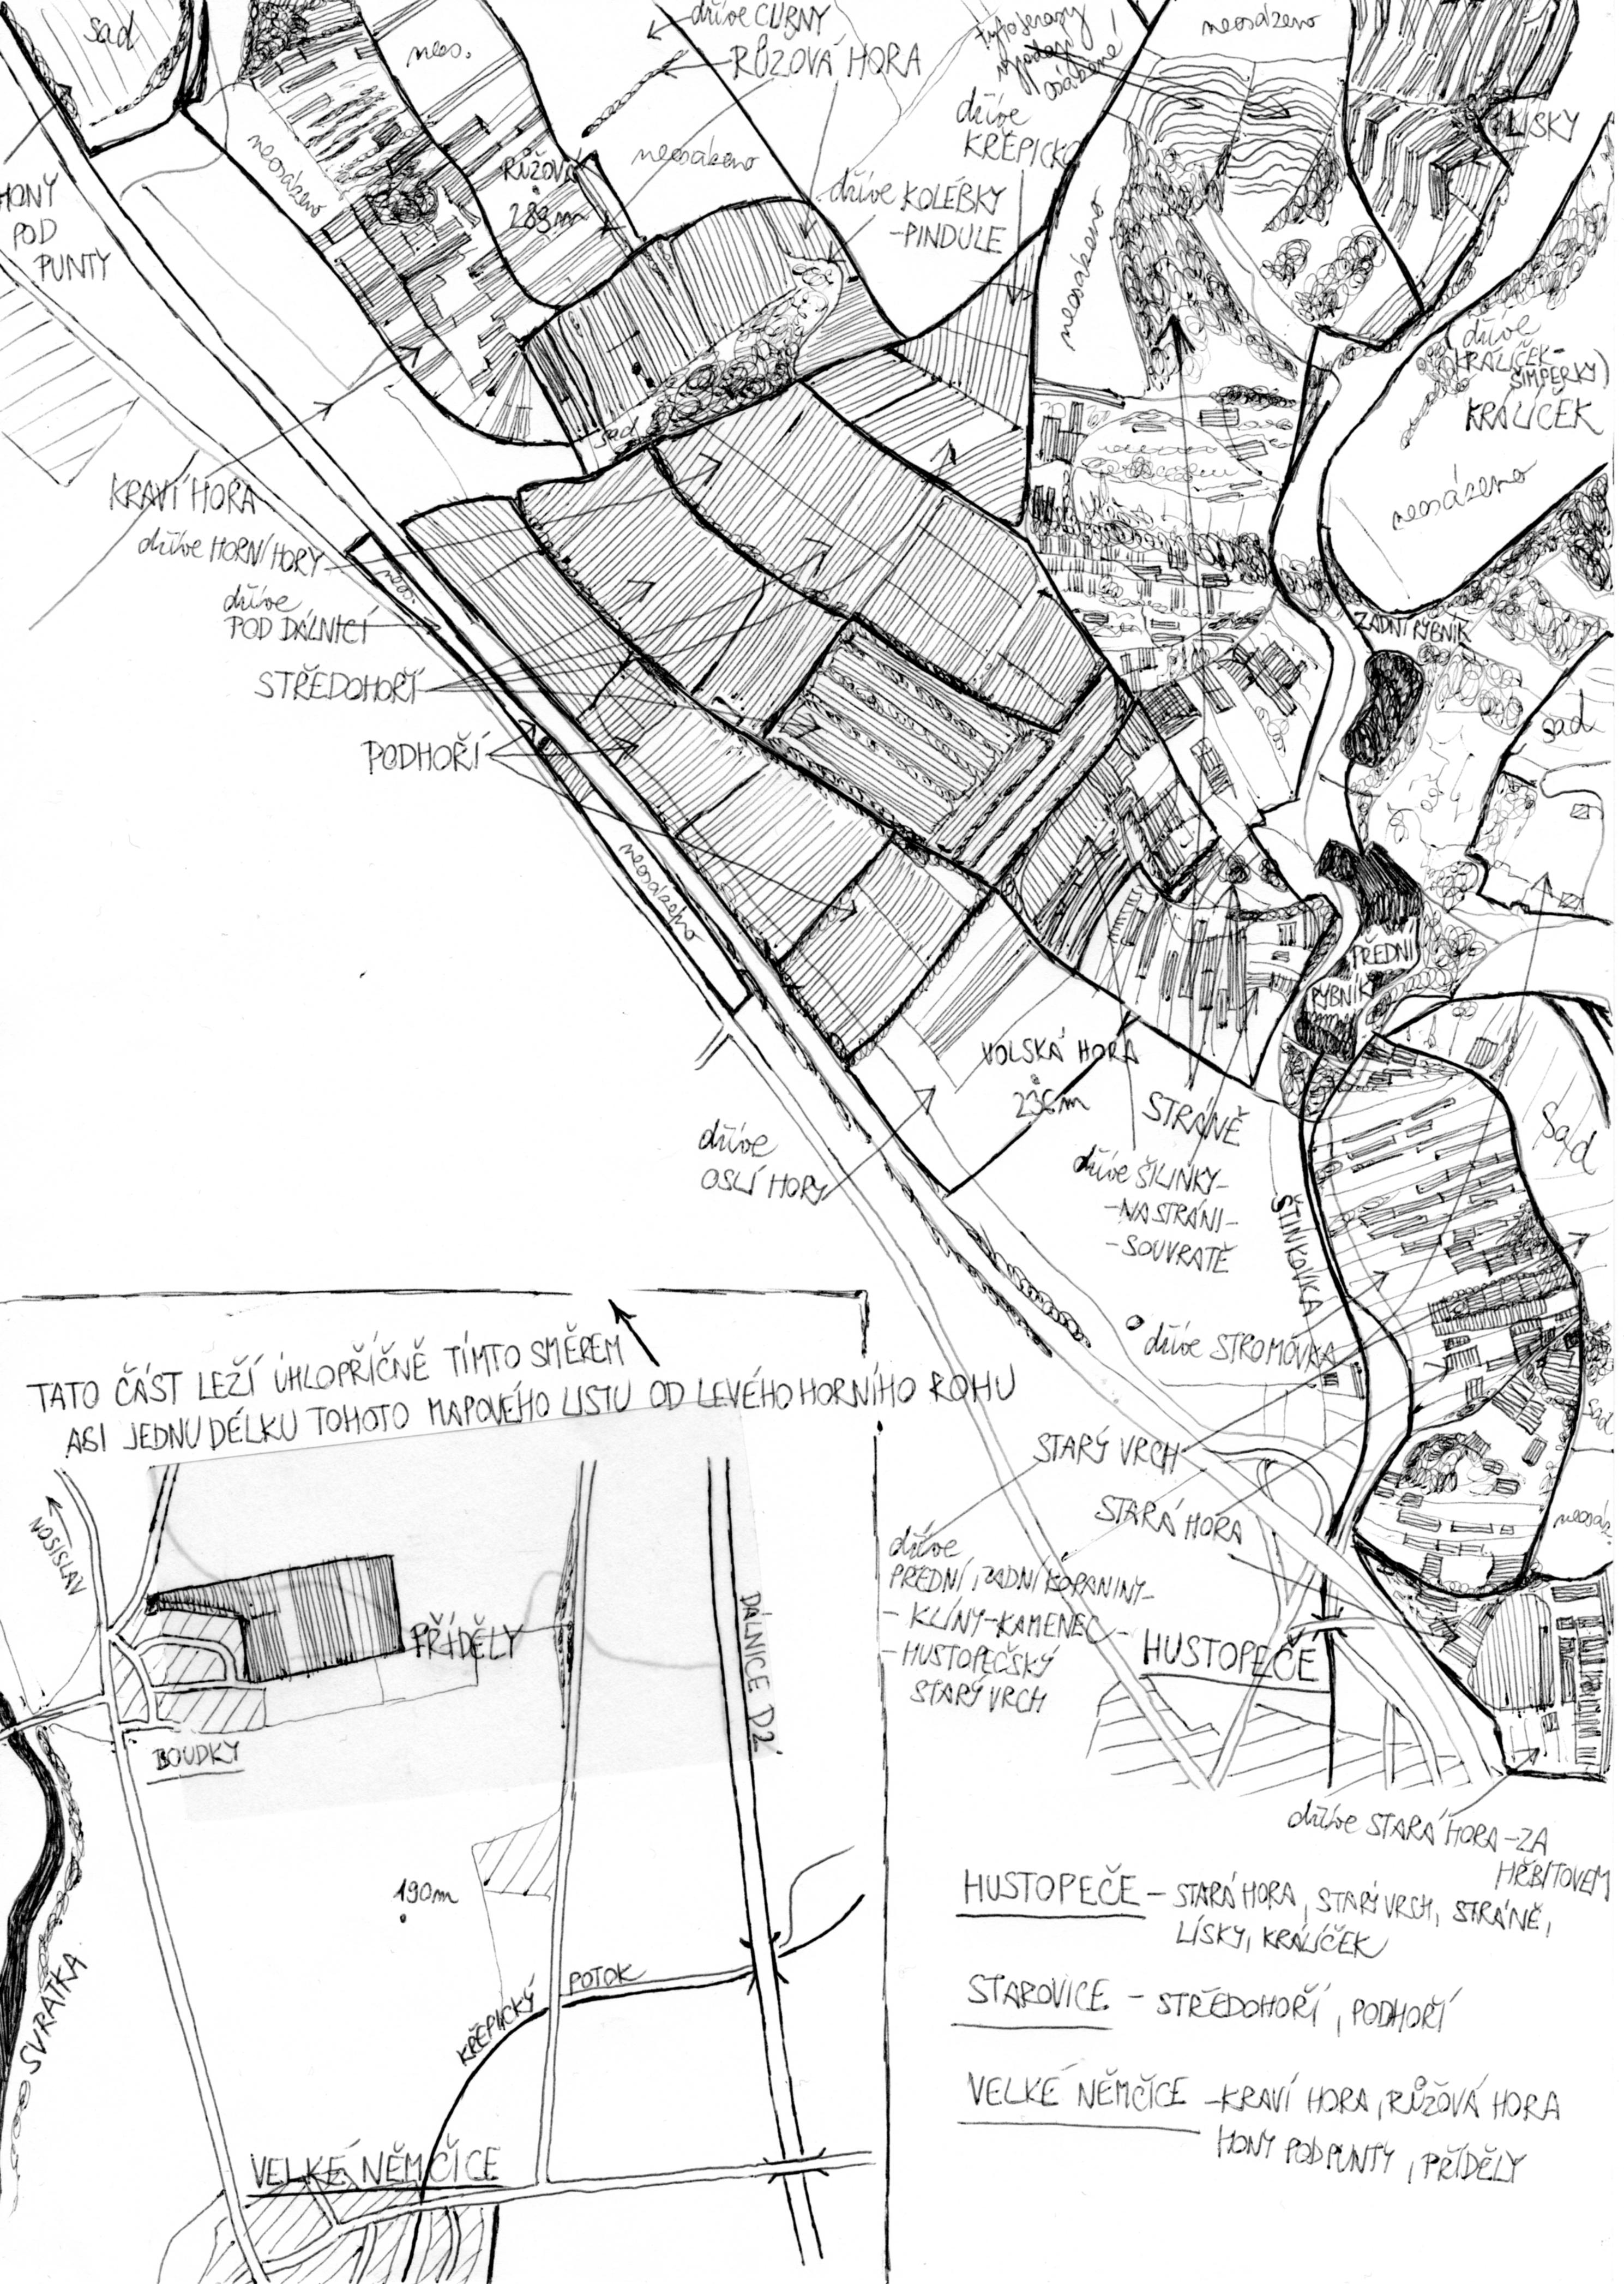 sad
neos.
dříve CURNY
RŮZOVÁ HORA
neosázeno
LÍSKY
dříve
KŘEPICKO
neosázeno
RŮŽOVÁ
283m
neosázeno
dříve KOLÉBKY
-PINDULE
neosázeno
HONY
POD
PUNTY
(dříve
KRÁLÍČEK-
ŠIMPERKY)
KRÁLÍČEK
neosázeno
sad
KRAVÍ HORA
dříve HORNÍ HORY
neos.
dříve
POD DÁLNICÍ
ZADNÍ RYBNÍK
STŘEDOHOŘÍ
sad
PODHOŘÍ
neosázeno
PŘEDNÍ
RYBNÍK
VOLSKÁ HORA
236m
STRÁNĚ
sad
dříve
OSLÍ HORY
dříve ŠILINKY-
-NA STRÁNI-
-SOUVRATĚ
ŠTINKOVKA
dříve STROMOVKA
TATO ČÁST LEŽÍ ÚHLOPŘÍČNĚ TÍMTO SMĚREM
ASI JEDNU DÉLKU TOHOTO MAPOVÉHO LISTU OD LEVÉHO HORNÍHO ROHU
sad
STARÝ VRCH
STARÁ HORA
neosáz.
NOSISLAV
dříve
PŘEDNÍ, ZADNÍ KOPANINY-
- KLÍNY-KAMENEC-
-HUSTOPEČSKÝ
STARÝ VRCH
HUSTOPEČE
PŘÍDĚLY
DÁLNICE D2
BOUDKY
dříve STARÁ HORA-ZA
HŘBITOVEM
190m
HUSTOPEČE - STARÁ HORA, STARÝ VRCH, STRÁNĚ,
LÍSKY, KRÁLÍČEK
SVRATKA
KŘEPICKÝ POTOK
STAROVICE - STŘEDOHOŘÍ, PODHOŘÍ
VELKÉ NĚMČICE -KRAVÍ HORA, RŮŽOVÁ HORA
HONY POD PUNTY, PŘÍDĚLY
VELKÉ NĚMČICE